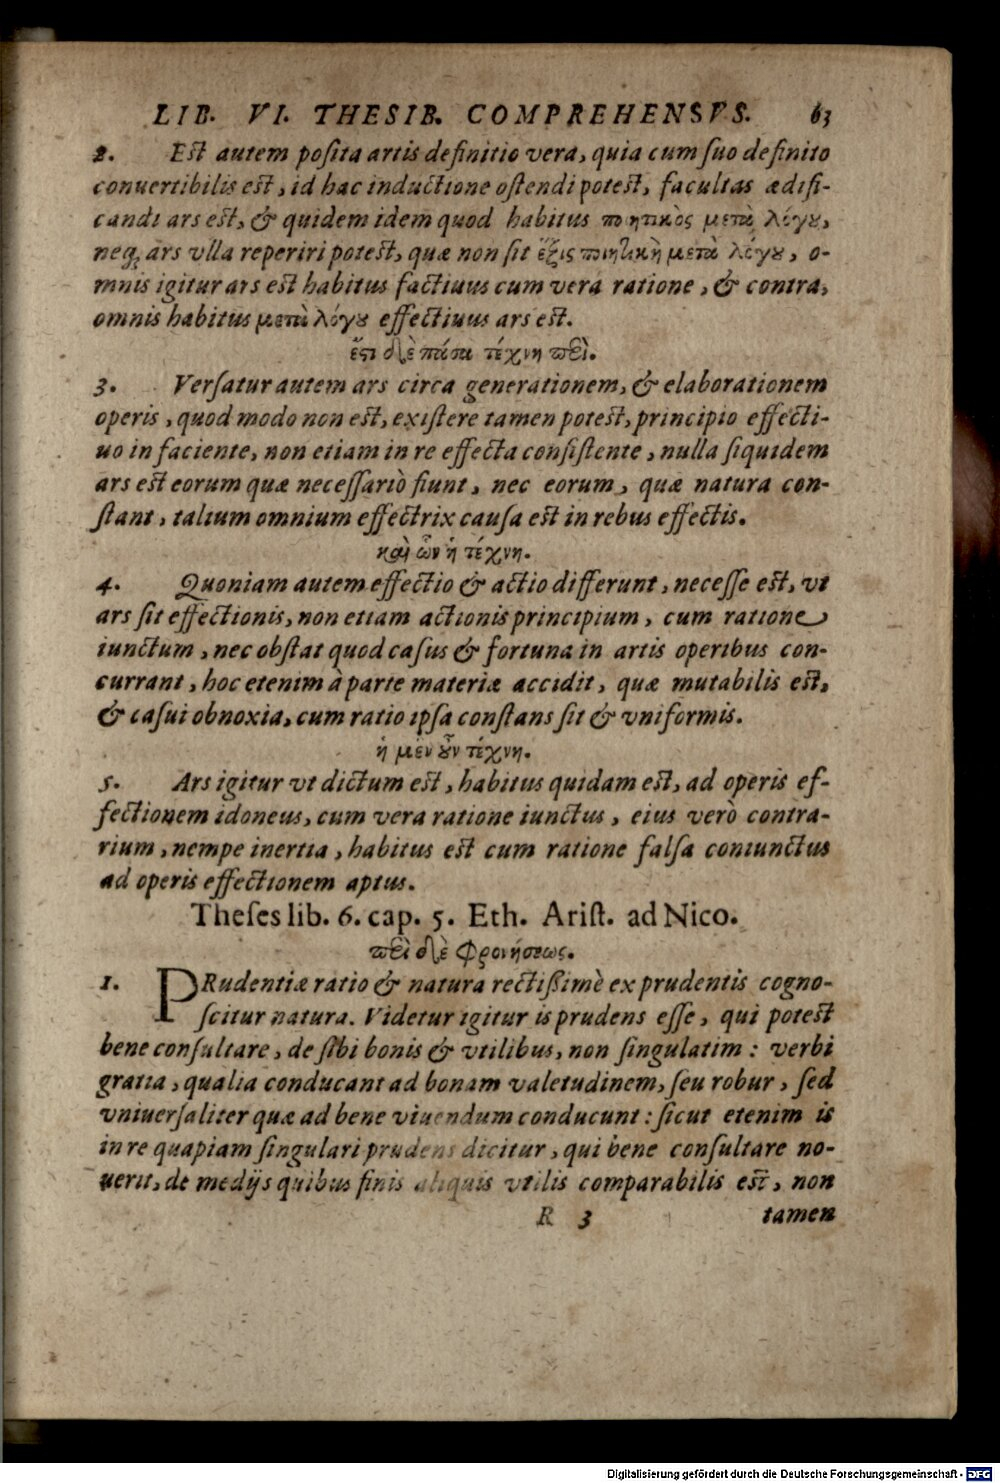 LIB. VI. THESIB. COMPREHENSVS. 63
2. Est autem posita artis definitio vera, quia cum suo definito
conuertibilis est, id hac inductione ostendi potest, facultas ædifi-
candi ars est, & quidem idem quod habitus ποιητικὸς μετὰ λόγου,
neq; ars vlla reperiri potest, quæ non sit ἕξις ποιητικὴ μετὰ λόγου, o-
mnis igitur ars est habitus factiuus cum vera ratione, & contra,
omnis habitus μετὰ λόγου effectiuus ars est.
ἔστι δὲ πᾶσα τέχνη περὶ.
3. Versatur autem ars circa generationem, & elaborationem
operis, quod modo non est, existere tamen potest, principio effecti-
uo in faciente, non etiam in re effecta consistente, nulla siquidem
ars est eorum quæ necessariò fiunt, nec eorum, quæ natura con-
stant, talium omnium effectrix causa est in rebus effectis.
καὶ ὧν ἡ τέχνη.
4. Quoniam autem effectio & actio differunt, necesse est, vt
ars sit effectionis, non etiam actionis principium, cum ratione
iunctum, nec obstat quod casus & fortuna in artis operibus con-
currant, hoc etenim à parte materiæ accidit, quæ mutabilis est,
& casui obnoxia, cum ratio ipsa constans sit & vniformis.
ἡ μὲν οὖν τέχνη.
5. Ars igitur vt dictum est, habitus quidam est, ad operis ef-
fectionem idoneus, cum vera ratione iunctus, eius verò contra-
rium, nempe inertia, habitus est cum ratione falsa coniunctus
ad operis effectionem aptus.
Theses lib. 6. cap. 5. Eth. Arist. ad Nico.
περὶ δὲ φρονήσεως.
1. PRudentiæ ratio & natura rectissimè ex prudentis cogno-
scitur natura. Videtur igitur is prudens esse, qui potest
bene consultare, de sibi bonis & vtilibus, non singulatim: verbi
gratia, qualia conducant ad bonam valetudinem, seu robur, sed
vniuersaliter quæ ad bene viuendum conducunt: sicut etenim is
in re quapiam singulari prudens dicitur, qui bene consultare no-
uerit, de medijs quibus finis aliquis vtilis comparabilis est, non
R 3 tamen
Digitalisierung gefördert durch die Deutsche Forschungsgemeinschaft - DFG